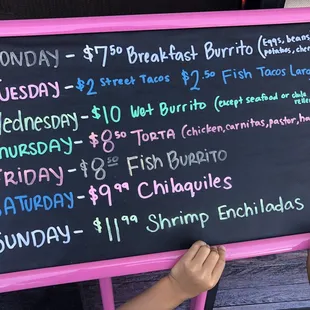 MONDAY - $7⁵⁰ Breakfast Burrito (Eggs, beans, potatoes, chee
TUESDAY - $2 Street Tacos $2.⁵⁰ Fish Tacos Lard
Wednesday - $10 Wet Burrito (except seafood or chile relleno
THURSDAY - $8⁵⁰ TORTA (chicken, carnitas, pastor, ha
FRIDAY - $8.⁵⁰ Fish BURRITO
SATURDAY - $9⁹⁹ Chilaquiles
SUNDAY - $11⁹⁹ Shrimp Enchiladas